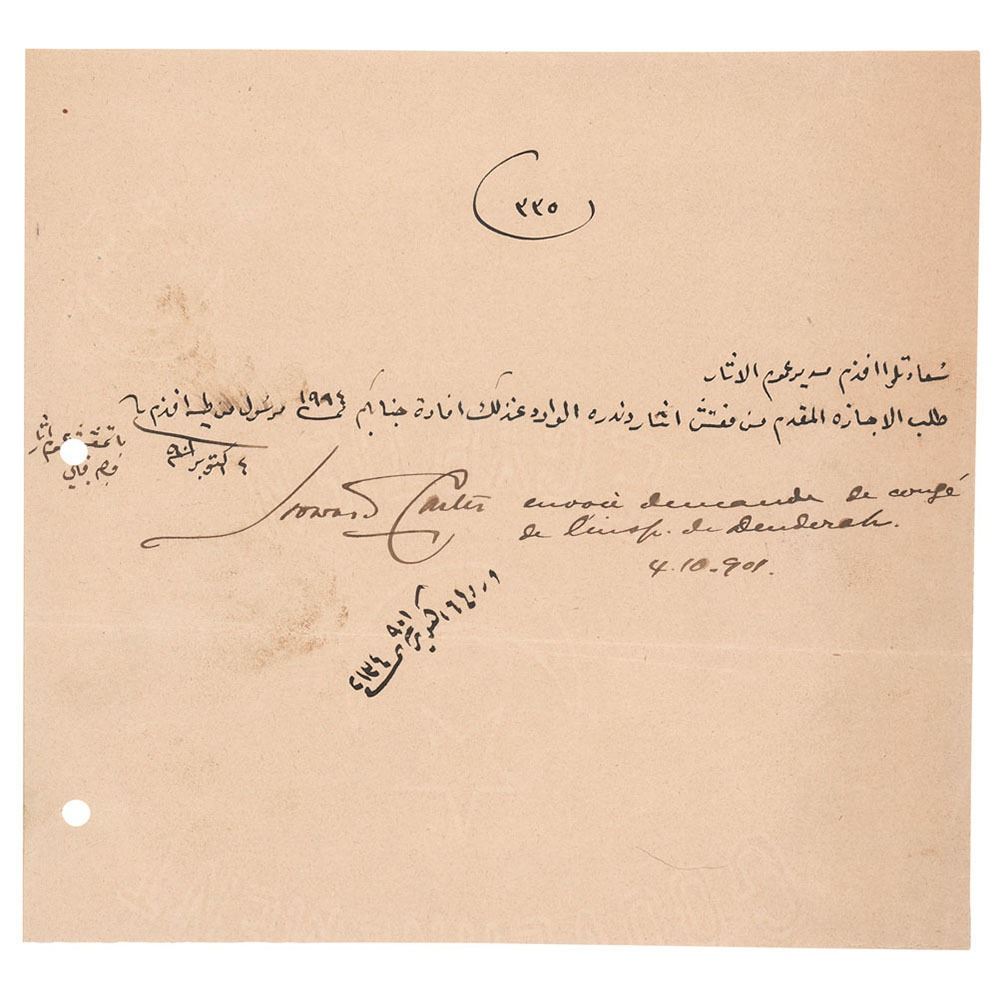 ٣٣٥
سعادتلو افندم مدير عموم الاثار
طلب الاجازه المقدم من مفتش اثار دندره الوارد عنذلك افادة جنابكم ١٩٩٤ مرسول من طيه افندم
٤ اكتوبر
Howard Carter envoie demande de congé
de l'insp. de Denderah.
4.10.901.
اكتوبر ٩٠١